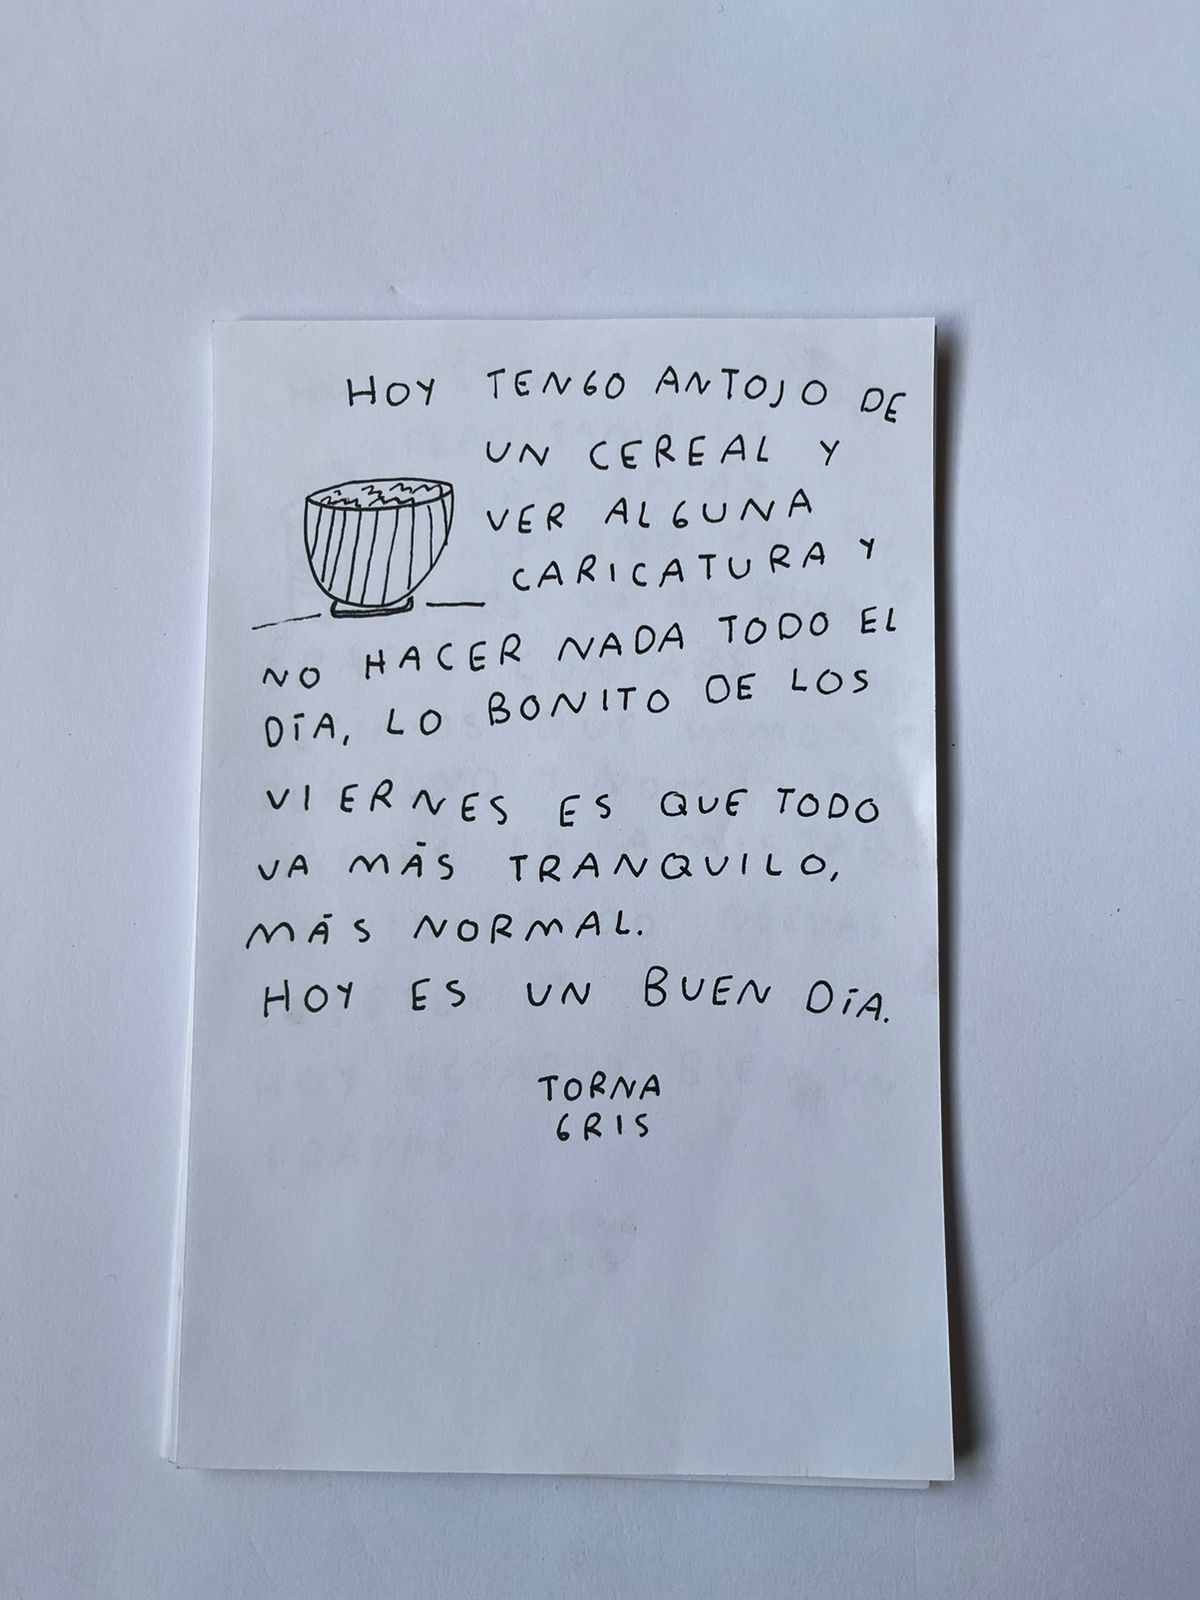 HOY TENGO ANTOJO DE
UN CEREAL Y
VER ALGUNA
CARICATURA Y
NO HACER NADA TODO EL
DÍA, LO BONITO DE LOS
VIERNES ES QUE TODO
VA MÁS TRANQUILO,
MÁS NORMAL.
HOY ES UN BUEN DÍA.
TORNA
GRIS